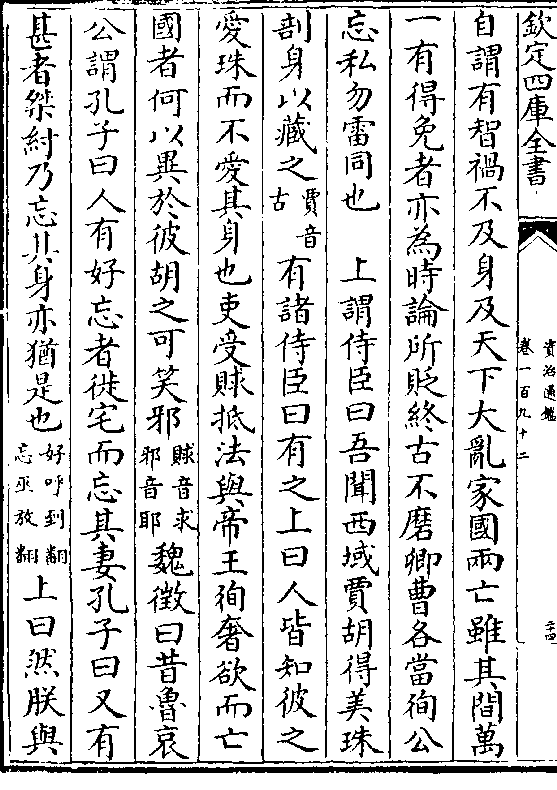 欽定四庫全書
資治通鑑
卷一百九十二
二十四
自謂有智禍不及身及天下大亂家國兩亡雖其間萬
一有得免者亦為時論所貶終古不磨卿曹各當徇公
忘私勿雷同也　上謂侍臣曰吾聞西域賈胡得美珠
剖身以藏之賈音古有諸侍臣曰有之上曰人皆知彼之
愛珠而不愛其身也吏受賕抵法與帝王徇奢欲而亡
國者何以異於彼胡之可笑邪賕音求邪音耶魏徵曰昔魯哀
公謂孔子曰人有好忘者徙宅而忘其妻孔子曰又有
甚者桀紂乃忘其身亦猶是也好呼到翻忘巫放翻上曰然朕與